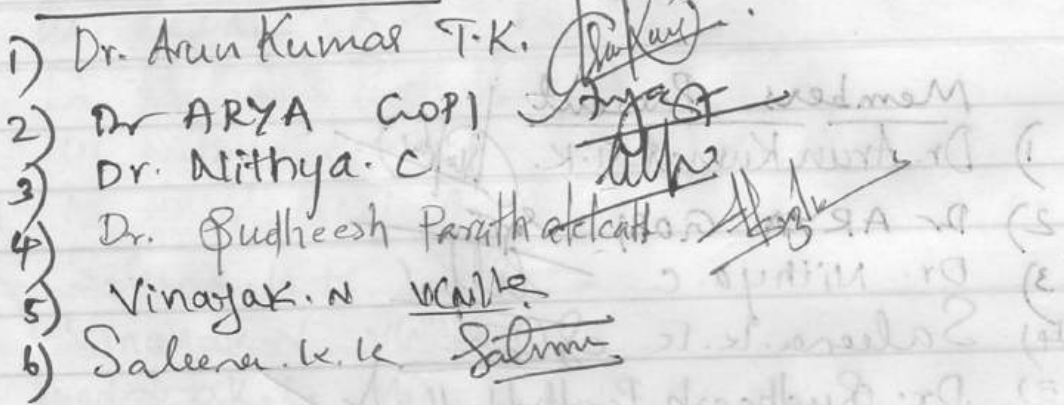 1) Dr. Arun Kumar T.K.
2) Dr ARYA GOPI Arya
3) Dr. Nithya. C
4) Dr. Sudheesh
5) Vinayak. N
6) Saleena. K. K